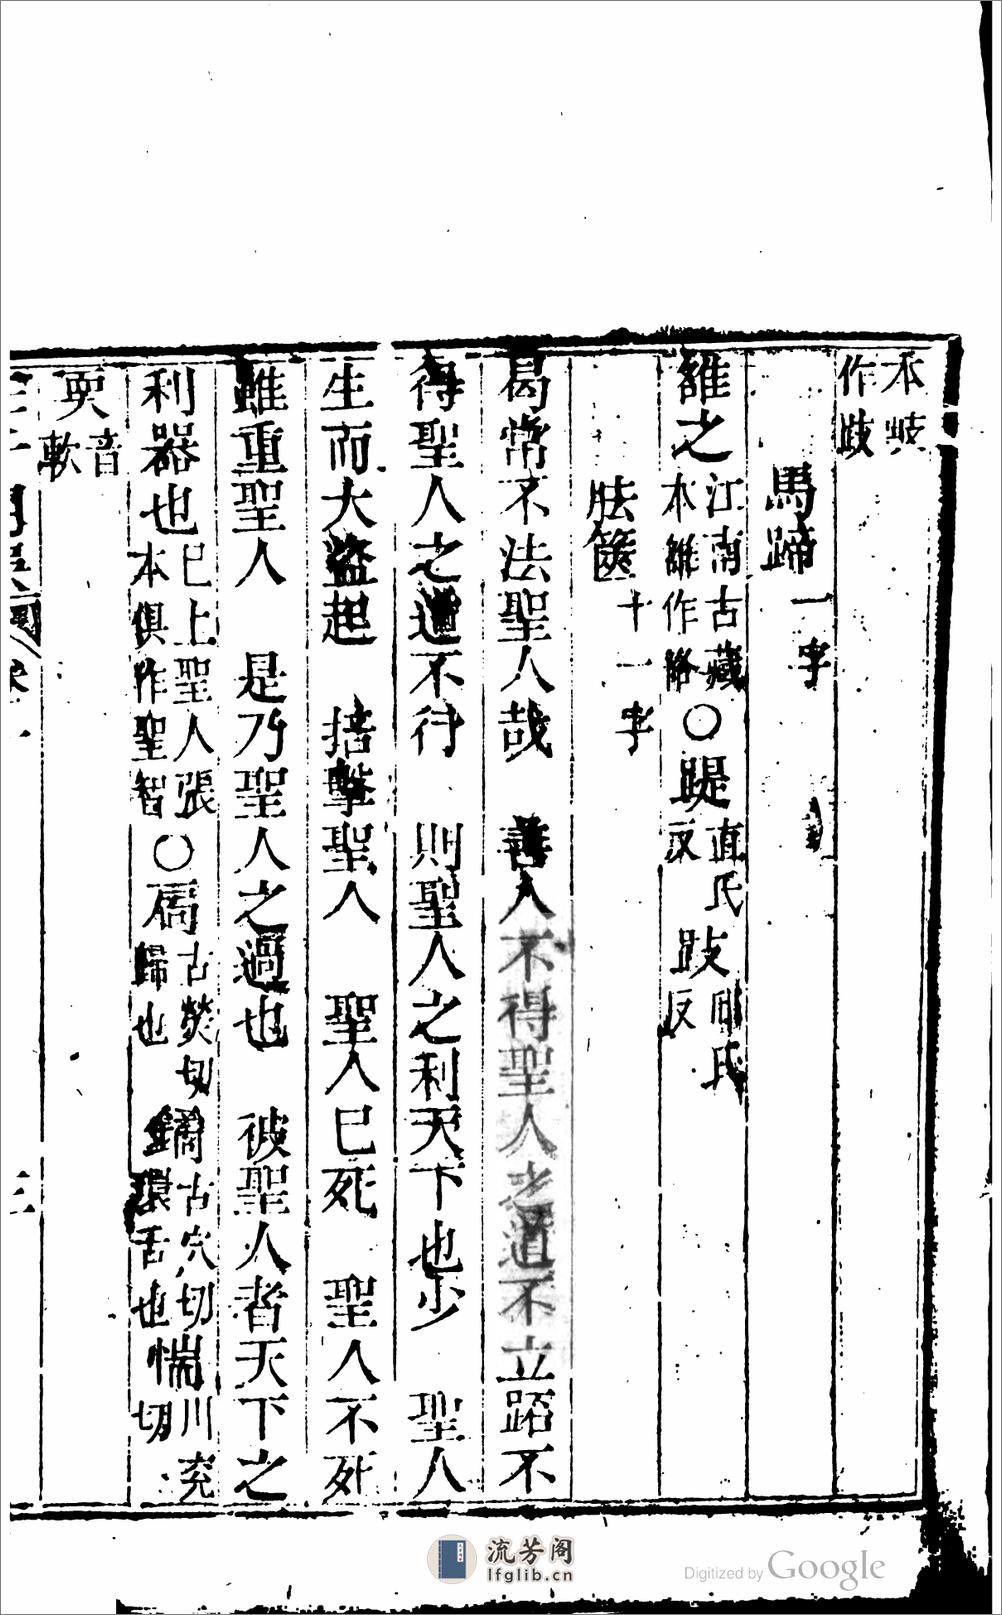 本岐作歧
馬蹄一字
雒之江南古藏本雒作咯〇踶直氏反跂丘氏反
胠篋十一字
曷常不法聖人哉 善人不得聖人之道不立跖不
得聖人之道不行 則聖人之利天下也少 聖人
生而大盜起 掊擊聖人 聖人已死 聖人不死
雖重聖人 是乃聖人之過也 彼聖人者天下之
利器也已上聖人張本俱作聖智〇扃古熒切歸也鐍古穴切環舌也惴川兖切
耎音軟
流芳阁
lfglib.cn
Digitized by Google